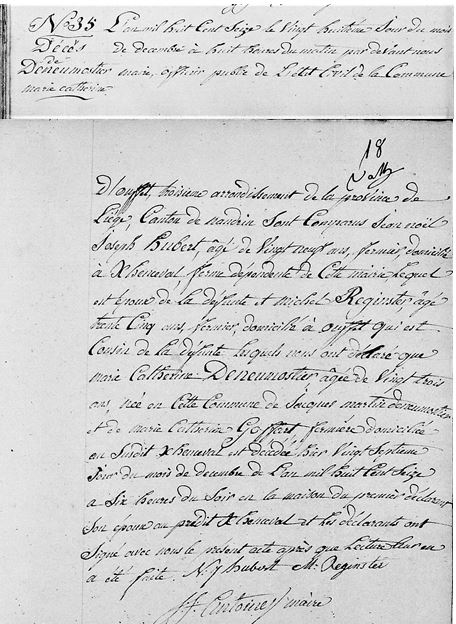 N° 35 L'an mil huit Cent Seize le Vingt huitieme Jour du mois
Décès de decembre a huit heures du matin par devant nous
de
Deneumostier maire, officier public de L'etat Civil de la Commune
marie catherine
18
D'ouffet, troisieme arrondissement de la province de
Liége, Canton de nandrin Sont Comparus Jean noël
Joseph hubert, âgé de Vingt neuf ans, fermier, domicilié
à Xheneval, ferme dependente de Cette mairie, Lequel
est époux de la defunte et michel Reginster âgé
trente Cinq ans, fermier, domicilié à ouffet qui est
Cousin de la defunte Lesquels nous ont déclaré que
marie Catherine Deneumostier âgée de Vingt trois
ans, née en Cette Commune de Jacques martin deneumostier
et de marie Catherine Goffart fermière domiciliée
au Susdit Xheneval est décedée hier Vingt Septieme
Jour du mois de decembre de L'an mil huit Cent Seize
a Six heures du Soir en la maison du premier déclarant
Son epoux au prédit Xheneval et les déclarants ont
Signé avec nous le présent acte après que Lecture leur en
a été faite. N J hubert M. Reginster
Antoine maire